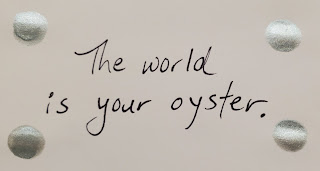 The world
is your oyster.